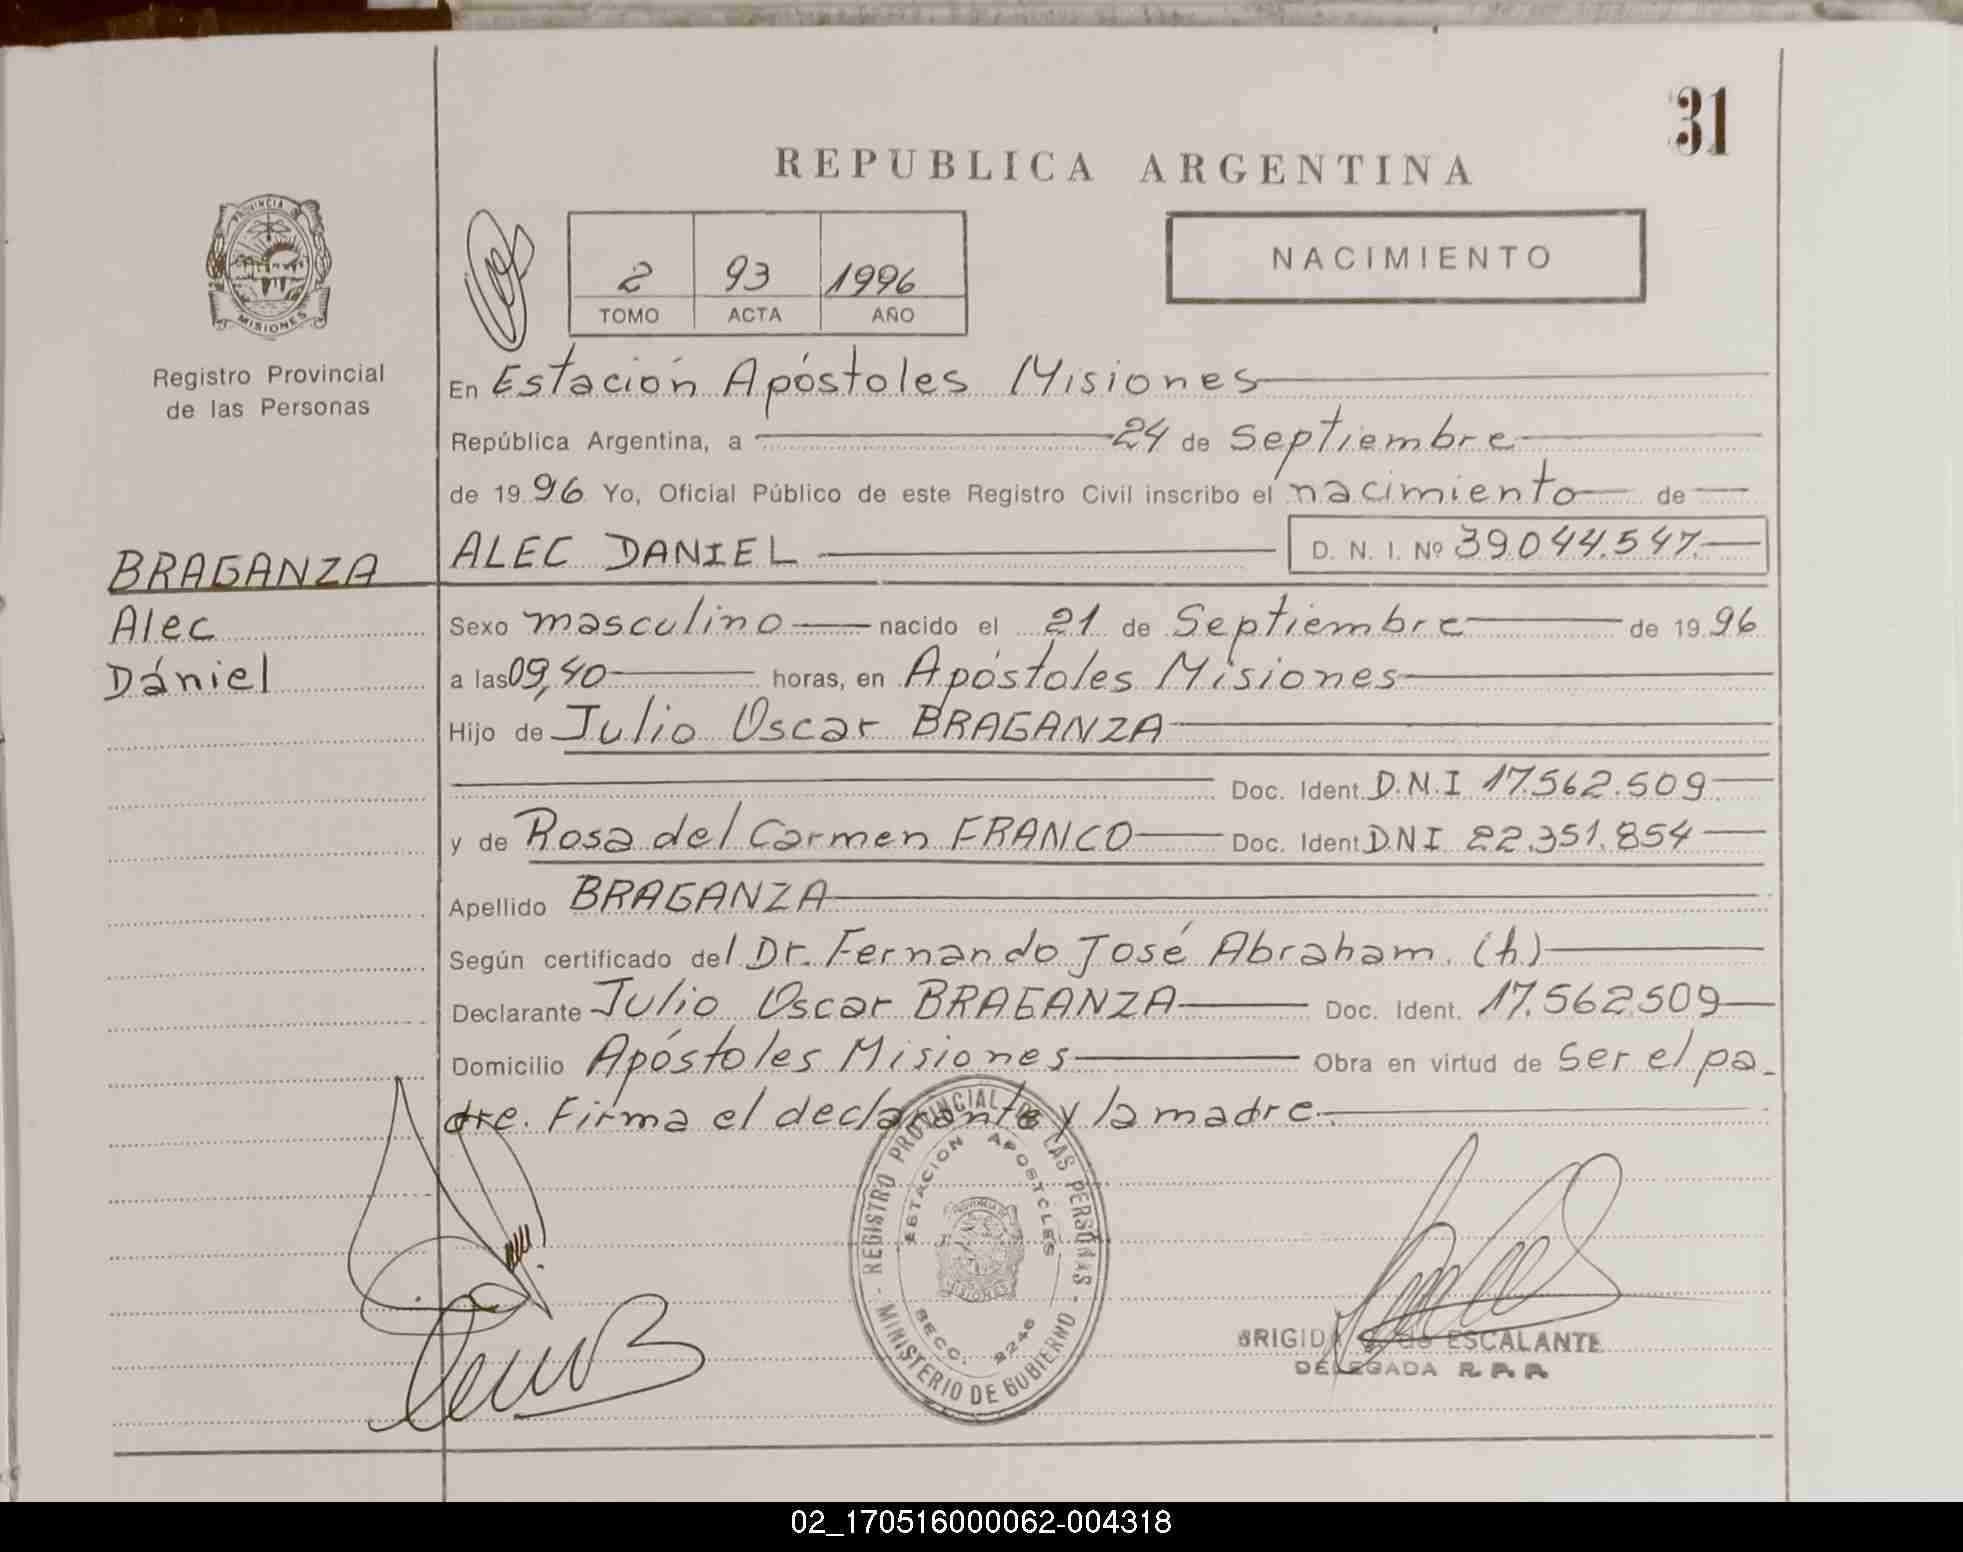 31
REPUBLICA ARGENTINA
PROVINCIA DE
MISIONES
Registro Provincial
de las Personas
2 93 1996
TOMO ACTA AÑO
NACIMIENTO
En Estación Apóstoles Misiones
República Argentina, a 24 de Septiembre
de 1996 Yo, Oficial Público de este Registro Civil inscribo el nacimiento de
BRAGANZA
Alec
Dániel
ALEC DANIEL D. N. I. Nº 39.044.547.
Sexo masculino nacido el 21 de Septiembre de 1996
a las 09,40 horas, en Apóstoles Misiones
Hijo de Julio Oscar BRAGANZA
Doc. Ident. D.N.I 17.562.509
y de Rosa del Carmen FRANCO Doc. Ident DNI 22.351.854
Apellido BRAGANZA
Según certificado del Dr. Fernando José Abraham. (h)
Declarante Julio Oscar BRAGANZA Doc. Ident. 17.562.509
Domicilio Apóstoles Misiones Obra en virtud de ser el pa-
dre. Firma el declarante y la madre.
REGISTRO PROVINCIAL DE LAS PERSONAS - MINISTERIO DE GOBIERNO -
ESTACION APOSTOLES
SECC. 2246
MISIONES
de ESCALANTE
DELEGADA
02_170516000062-004318